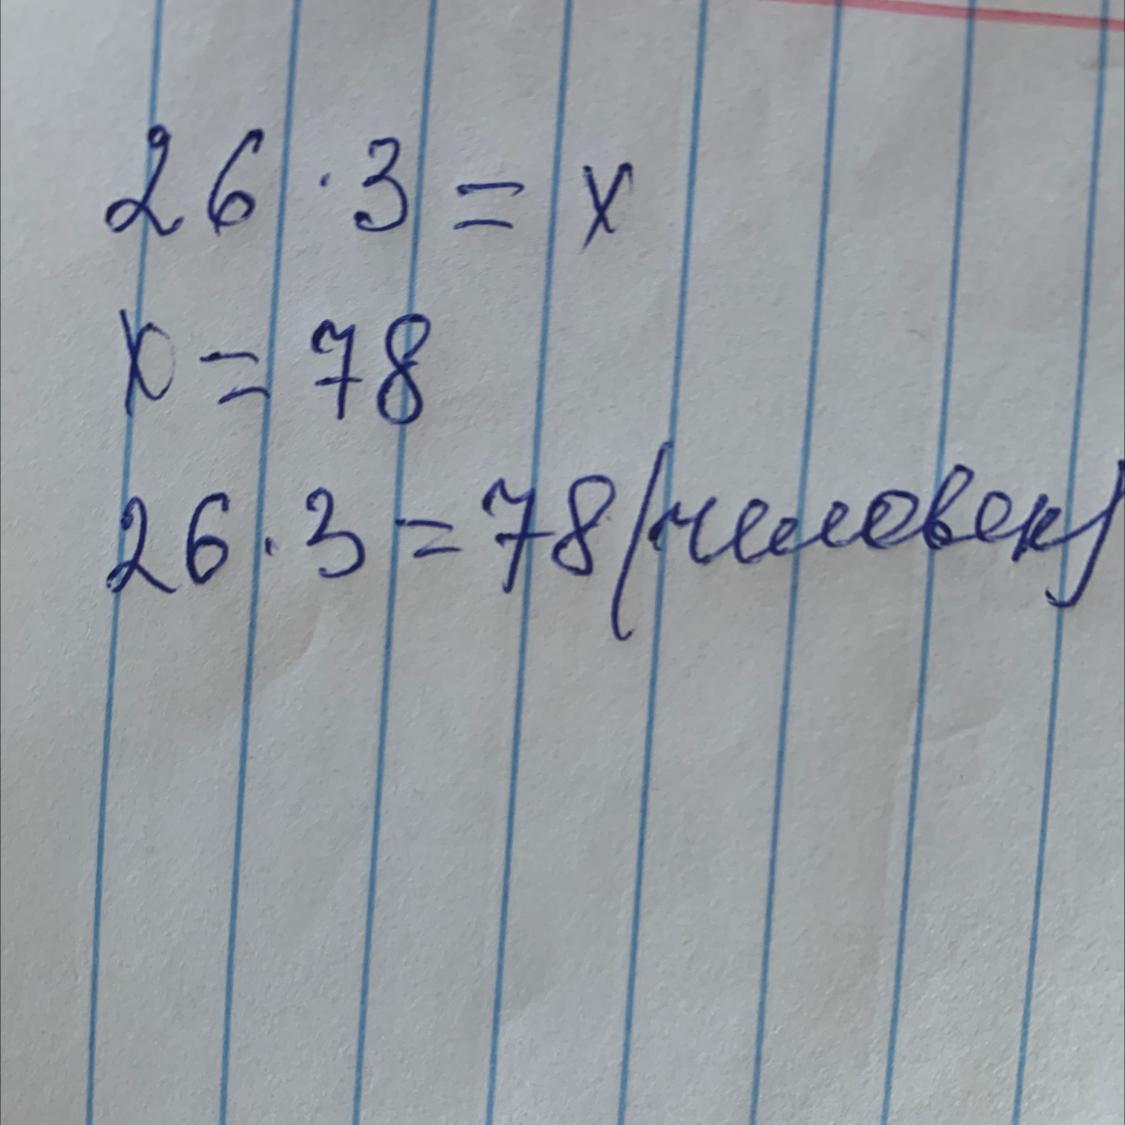 26 · 3 = x
x = 78
26 · 3 = 78 (человек)